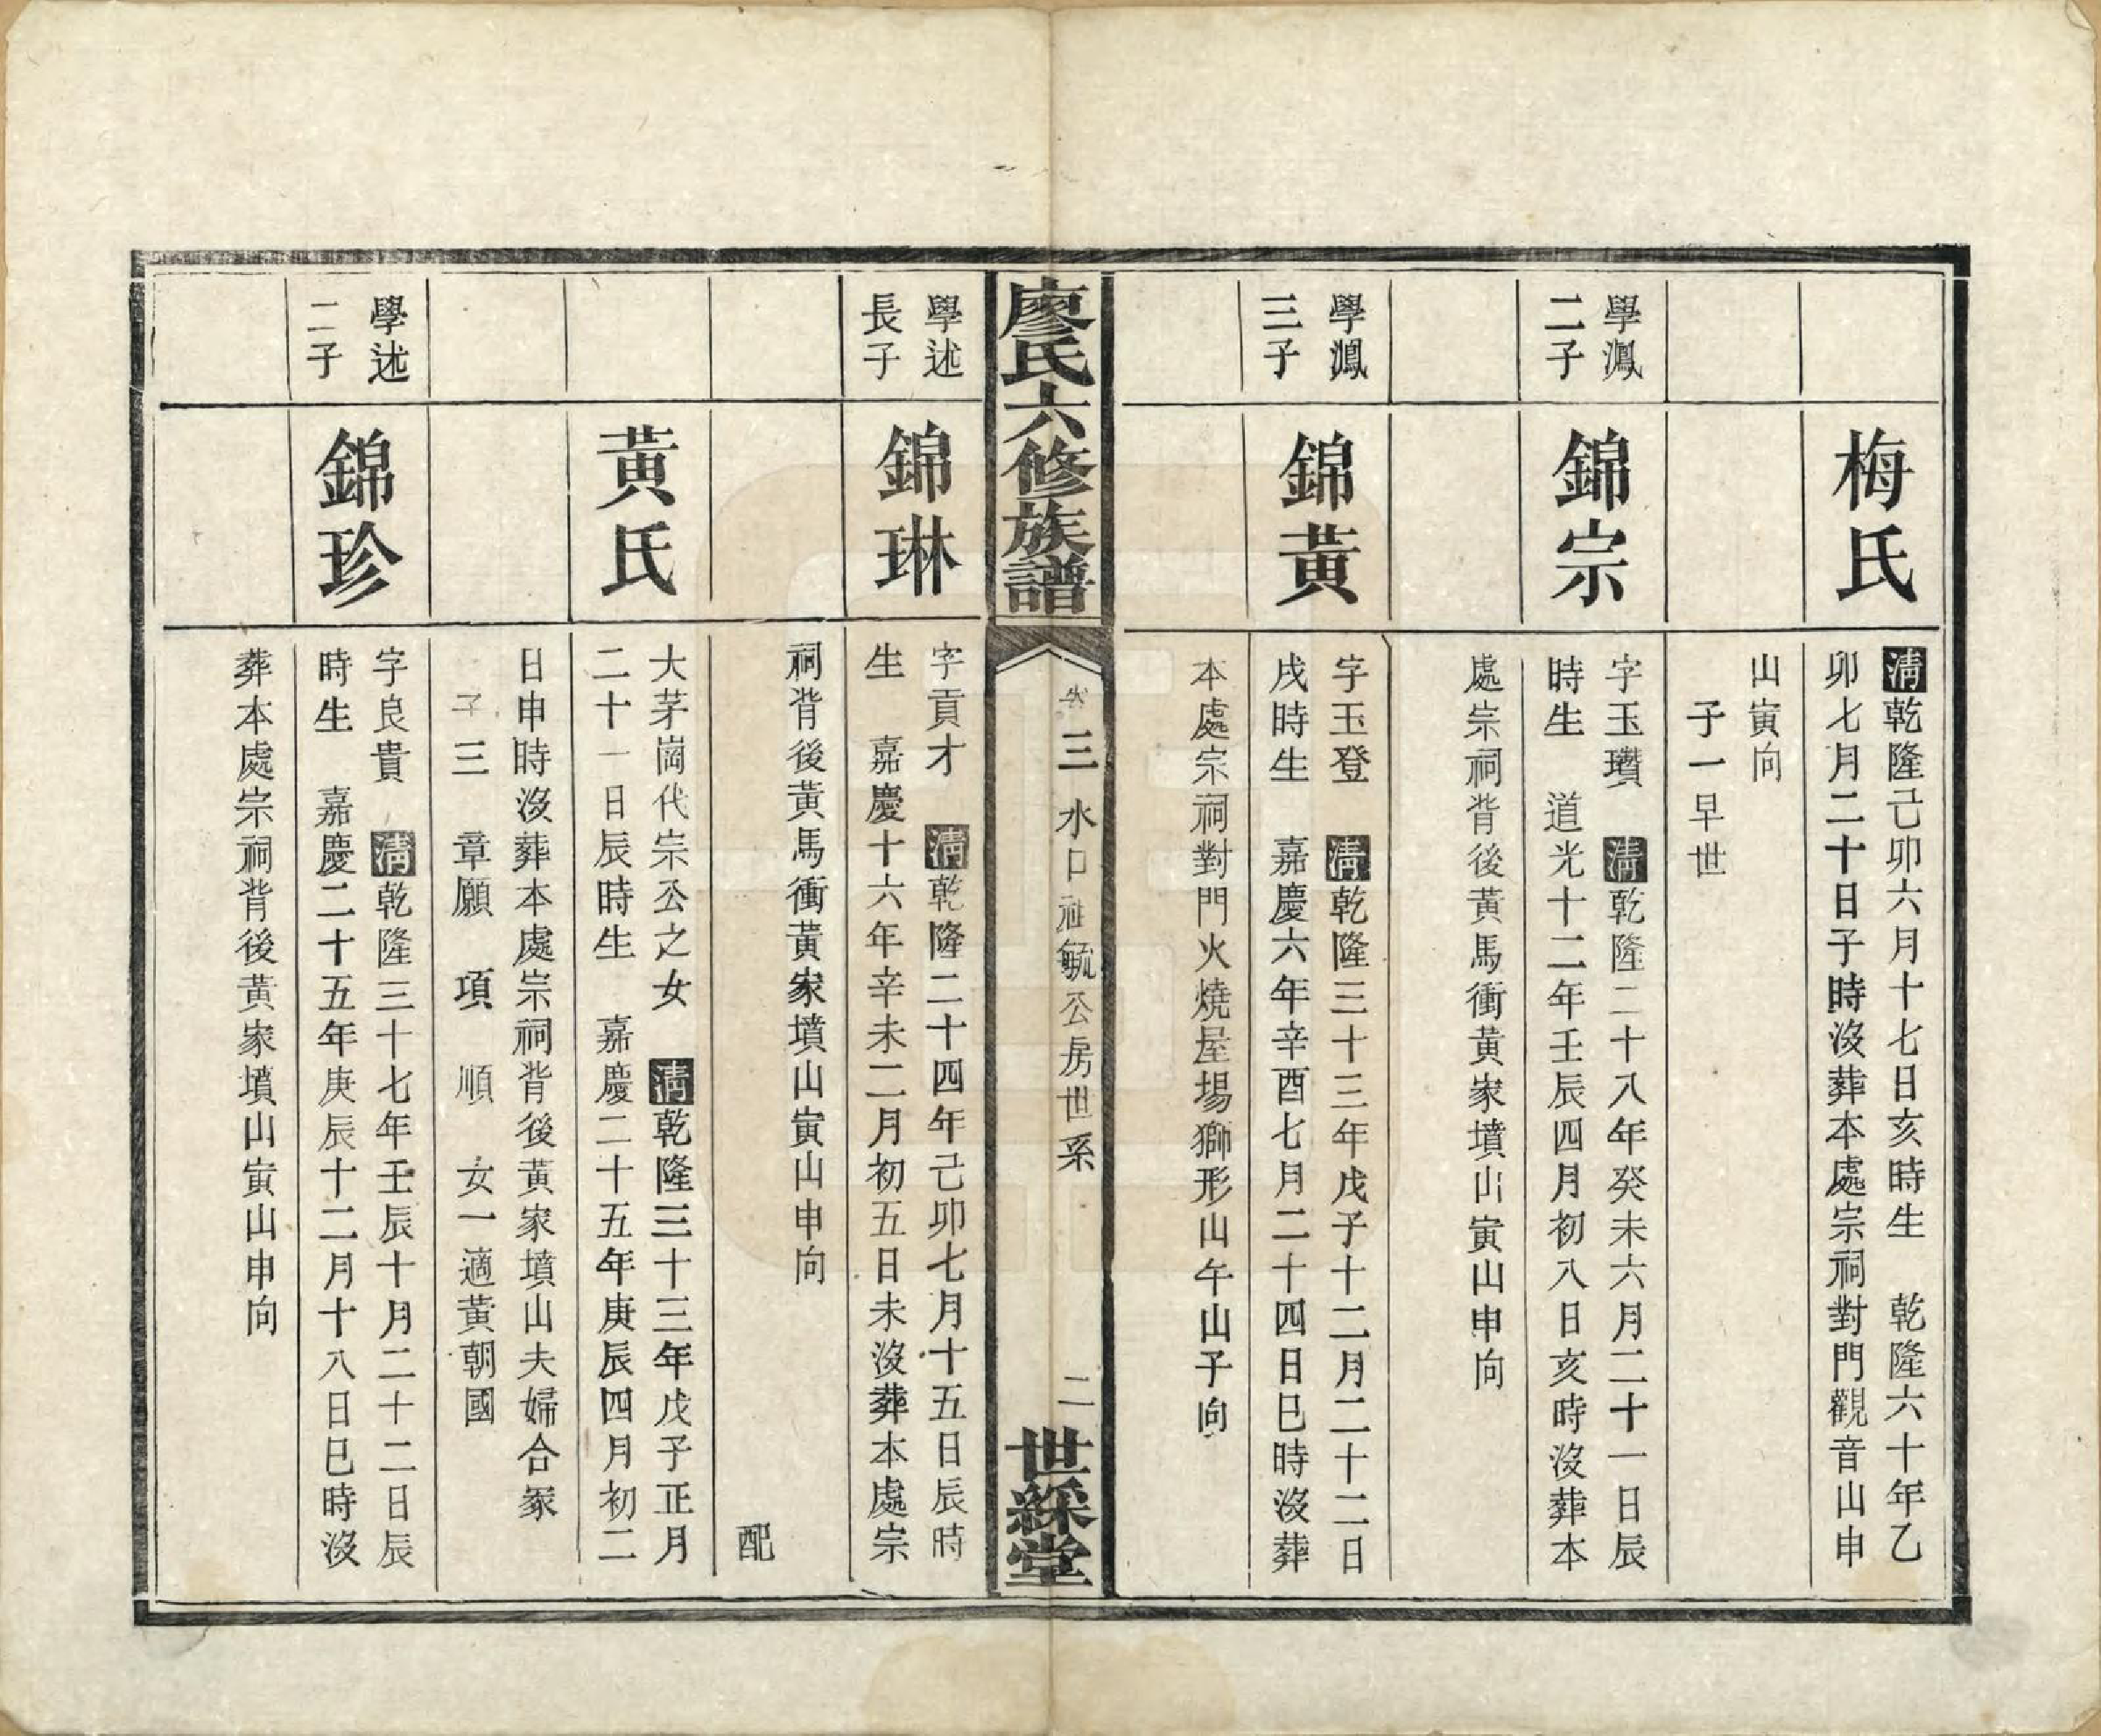 梅氏
清乾隆己卯六月十七日亥時生　乾隆六十年乙
卯七月二十日子時沒葬本處宗祠對門觀音山申
山寅向
子一早世
學鳳
二子
錦宗
字玉瓚　清乾隆二十八年癸未六月二十一日辰
時生　道光十二年壬辰四月初八日亥時沒葬本
處宗祠背後黃馬衝黃家墳山寅山申向
學鳳
三子
錦黃
字玉登　清乾隆三十三年戊子十二月二十二日
戌時生　嘉慶六年辛酉七月二十四日巳時沒葬
本處宗祠對門火燒屋場獅形山午山子向
廖氏六修族譜
卷三　水口祖毓公房世系
二
世綵堂
學述
長子
錦琳
字貢才　清乾隆二十四年己卯七月十五日辰時
生　嘉慶十六年辛未二月初五日未沒葬本處宗
祠背後黃馬衝黃家墳山寅山申向
配
黃氏
大茅崗代宗公之女　清乾隆三十三年戊子正月
二十一日辰時生　嘉慶二十五年庚辰四月初二
日申時沒葬本處宗祠背後黃家墳山夫婦合冢
子三　章願　項　順　女一適黃朝國
學述
二子
錦珍
字良貴　清乾隆三十七年壬辰十月二十二日辰
時生　嘉慶二十五年庚辰十二月十八日巳時沒
葬本處宗祠背後黃家墳山寅山申向